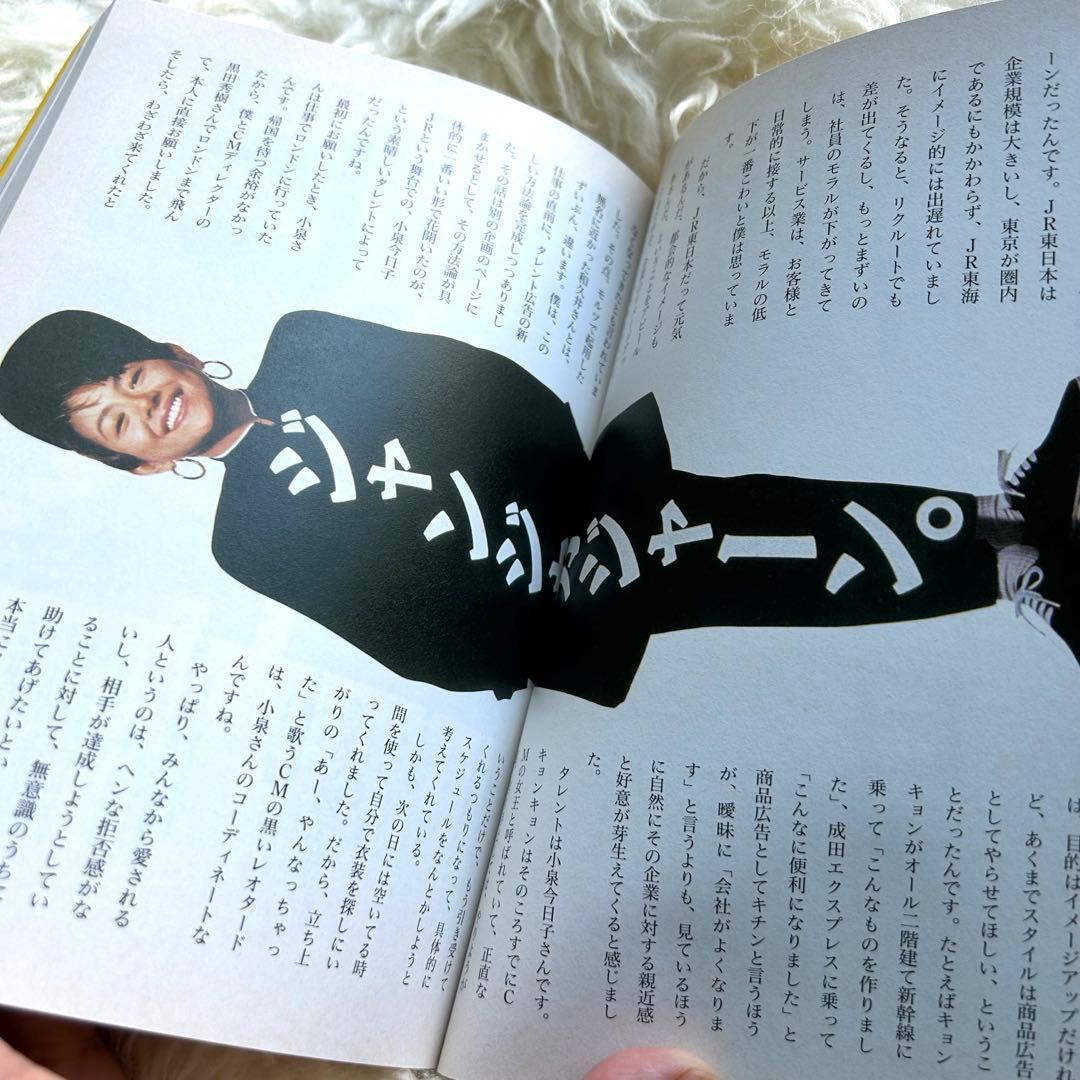 ーンだったんです。JR東日本は
企業規模は大きいし、東京が圏内
であるにもかかわらず、JR東海
にイメージ的には出遅れていまし
た。そうなると、リクルートでも
差が出てくるし、もっとまずいの
は、社員のモラルが下がってきて
しまう。サービス業は、お客様と
日常的に接する以上、モラルの低
下が一番こわいと僕は思っていま
す。
だから、JR東日本だって元気
があるんだ、都会的なイメージも
あるんだ、ということをアピール
は、目的はイメージアップだけれ
ど、あくまでスタイルは商品広告
としてやらせてほしい、というこ
とだったんです。たとえばキョン
キョンがオール二階建て新幹線に
乗って「こんなものを作りまし
た」、成田エクスプレスに乗って
「こんなに便利になりました」と
商品広告としてキチンと言うほう
が、曖昧に「会社がよくなりま
す」と言うよりも、見ているほう
に自然にその企業に対する親近感
と好意が芽生えてくると感じまし
た。
タレントは小泉今日子さんです。
キョンキョンはそのころすでにC
Mの女王と呼ばれていて、正直な
ジャンジャジャーン。
した。その点、モッツで起用した
無名に近かった和久井さんとは、
ずいぶん、違います。僕は、この
仕事の直前に、タレント広告の新
しい方法論を完成しつつありまし
た。その話は別の企画のページに
まかせるとして、その方法論が具
体的に一番いい形で花開いたのが、
JRという舞台での、小泉今日子
という素晴しいタレントによって
だったんですね。
最初にお願いしたとき、小泉さ
んは仕事でロンドンに行っていた
んです。帰国を待つ余裕がなかっ
たから、僕とCMディレクターの
黒田秀樹さんでロンドンまで飛ん
で、本人に直接お願いしました。
そしたら、わざわざ来てくれたと
いうことだけで
くれるつもりになって、具体的に
スケジュールをなんとかしようと
考えてくれている。
しかも、次の日には空いてる時
間を使って自分で衣装を探しにい
ってくれました。だから、立ち上
がりの「あー、やんなっちゃっ
た」と歌うCMの黒いレオタード
は、小泉さんのコーディネートな
んですね。
やっぱり、みんなから愛される
人というのは、ヘンな拒否感がな
いし、相手が達成しようとしてい
ることに対して、無意識のうちに
助けてあげたいとい
本当に